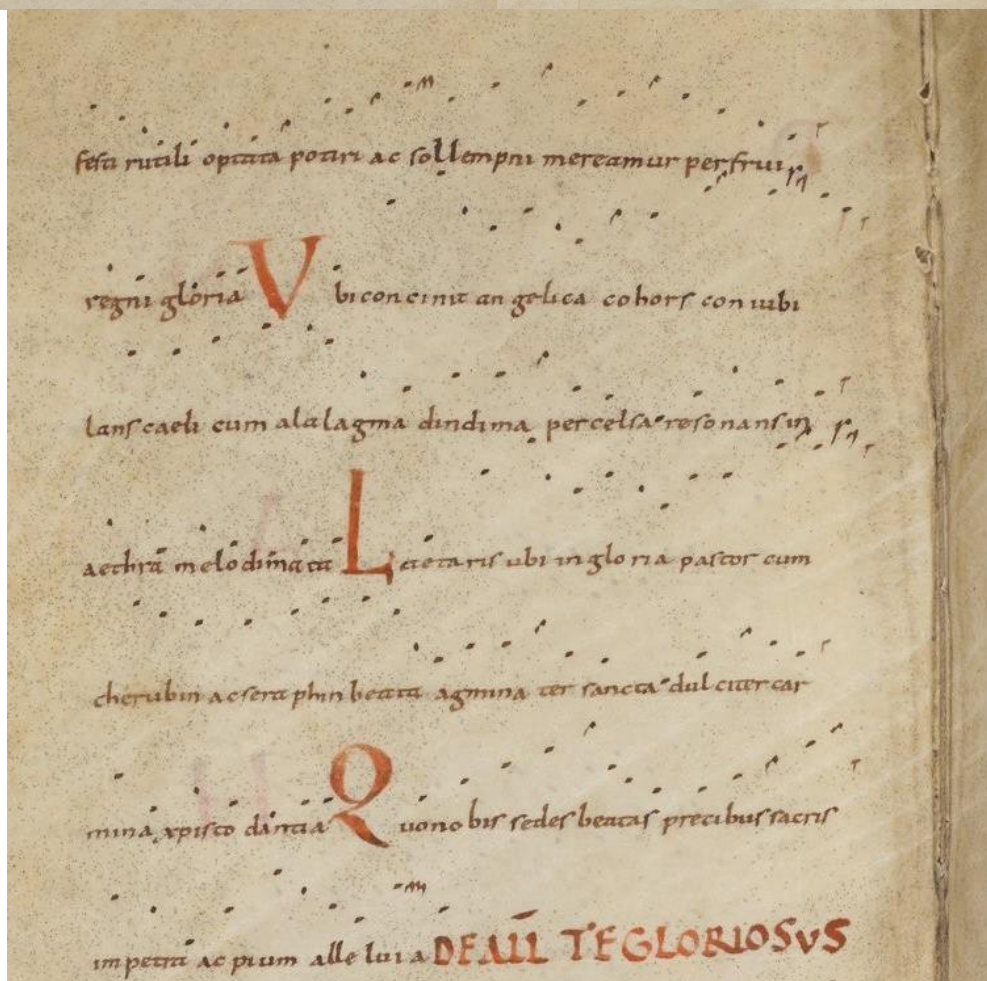 festi rutili optata potiri ac sollempni mereamur perfrui
regni gloria Vbi concinit angelica cohors con iubi
lans caeli cum alalagma dindima percelsa resonans in
aethra melodimata Laetaris ubi in gloria pastor cum
cherubin ac seraphin beata agmina ter sancta dulciter car
mina xpisto dantia Quo nobis sedes beatas precibus sacris
impetra ac pium alleluia DE ALL TE GLORIOSVS